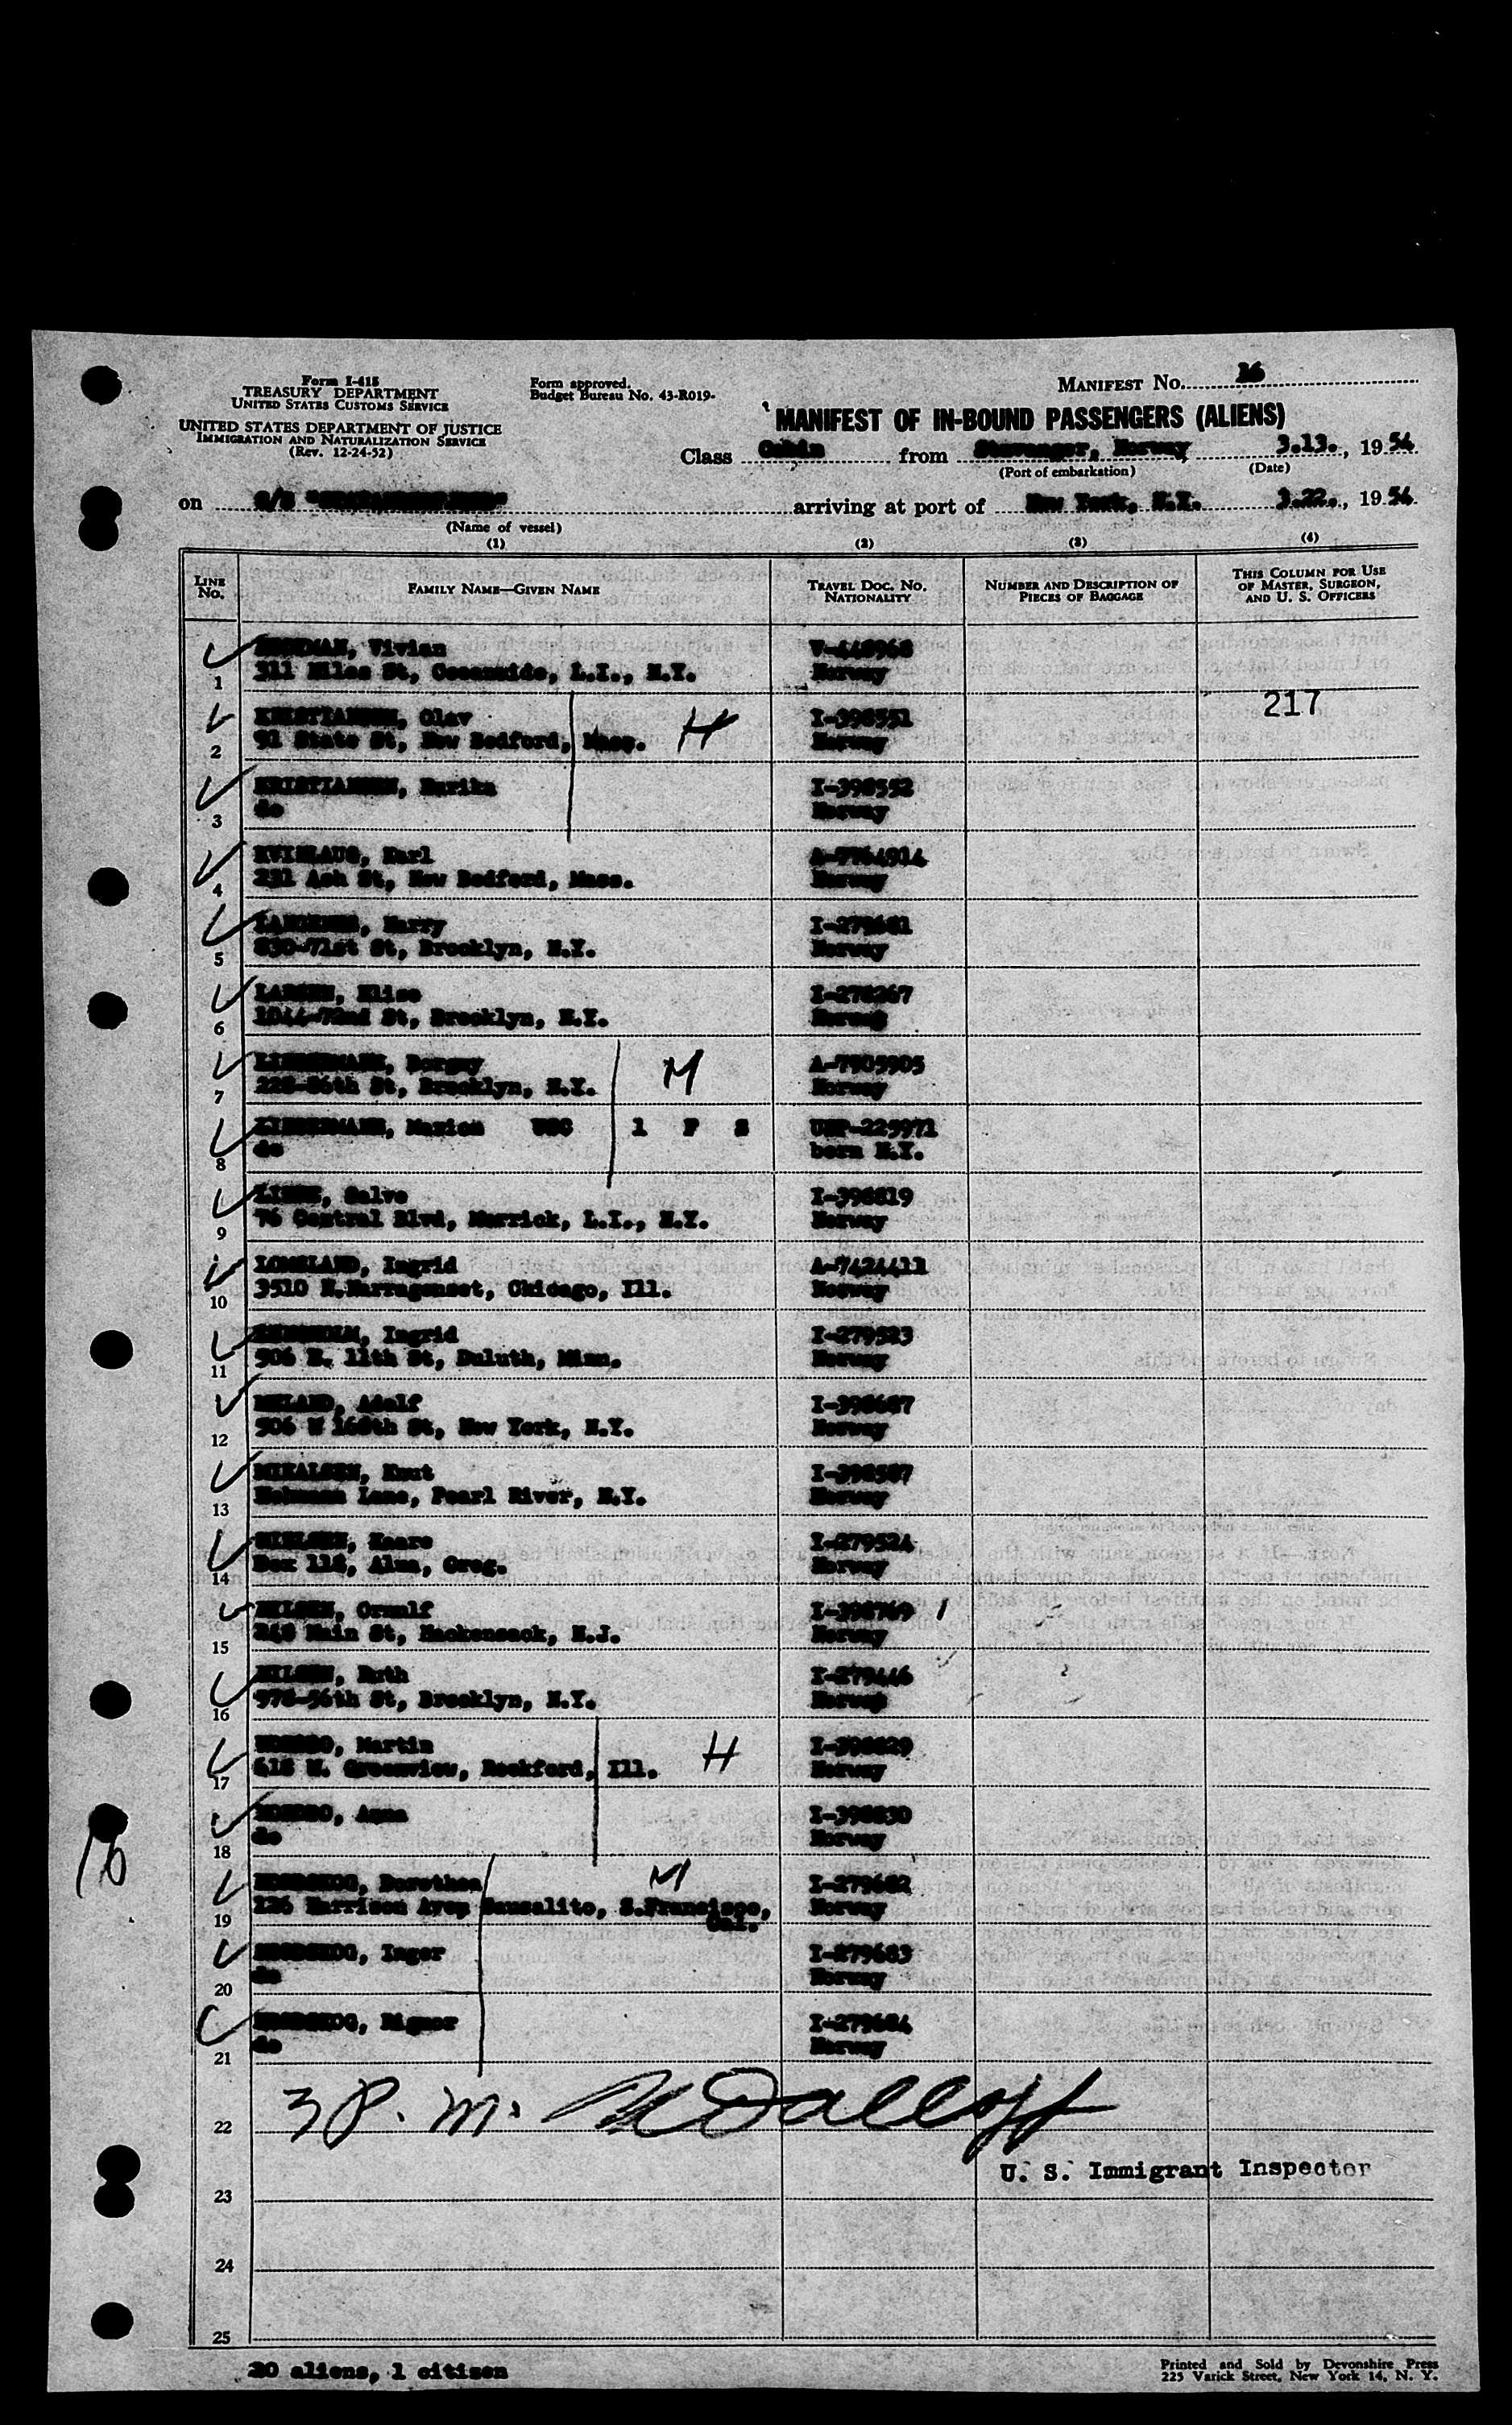 Form I-415
TREASURY DEPARTMENT
UNITED STATES CUSTOMS SERVICE
UNITED STATES DEPARTMENT OF JUSTICE
IMMIGRATION AND NATURALIZATION SERVICE
(Rev. 12-24-52)
Form approved.
Budget Bureau No. 43-R019-
MANIFEST No. 16
MANIFEST OF IN-BOUND PASSENGERS (ALIENS)
Class Cabin from Stavanger, Norway 3.13., 1954
(Port of embarkation) (Date)
on S/S arriving at port of New York, N.Y. 3.22., 1954
(Name of vessel)
(1) (2) (3) (4)
LINE No. FAMILY NAME—GIVEN NAME TRAVEL DOC. No. NATIONALITY NUMBER AND DESCRIPTION OF PIECES OF BAGGAGE THIS COLUMN FOR USE OF MASTER, SURGEON, AND U. S. OFFICERS
Vivian V-448968
1 311 Miles St, Oceanside, L.I., N.Y. Norway
217
KRISTIANSEN, Olav I-398551
2 91 State St, New Bedford, Mass. H Norway
KRISTIANSEN, I-398552
3 do Norway
Karl A-7764914
4 231 Ash St, New Bedford, Mass. Norway
Harry I-279681
5 830-71st St, Brooklyn, N.Y. Norway
LARSEN, Elise I-278267
6 1044-72nd St, Brooklyn, N.Y. Norway
Borgny A-7905905
7 228-86th St, Brooklyn, N.Y. M Norway
Marion USC 1 F S USP-225971
8 do born N.Y.
Salve I-398819
9 76 Central Blvd, Merrick, L.I., N.Y. Norway
LOMELAND, Ingrid A-7424411
10 3510 N.Narragenset, Chicago, Ill. Norway
Ingrid I-279523
11 506 E. 11th St, Duluth, Minn. Norway
MELAND, Adolf I-398687
12 506 W 168th St, New York, N.Y. Norway
MIKALSEN, Knut I-398587
13 Lane, Pearl River, N.Y. Norway
NIELSEN, Kaare I-279524
14 Box 118, Alma, Oreg. Norway
NILSEN, Ornulf I-398769
15 248 Main St, Hackensack, N.J. Norway
NILSEN, Ruth I-279446
16 978-56th St, Brooklyn, N.Y. Norway
Martin I-398829
17 618 N. Greenview, Rockford, Ill. H Norway
Anna I-398830
18 do Norway
16
Dorothea M I-279682
19 126 Harrison Ave, Sausalito, S.Francisco, Cal. Norway
Inger I-279683
20 do Norway
Rigmor I-279684
21 do Norway
22 3 P. M.
U. S. Immigrant Inspector
23
24
25
20 aliens, 1 citizen
Printed and Sold by Devonshire Press
225 Varick Street, New York 14, N. Y.